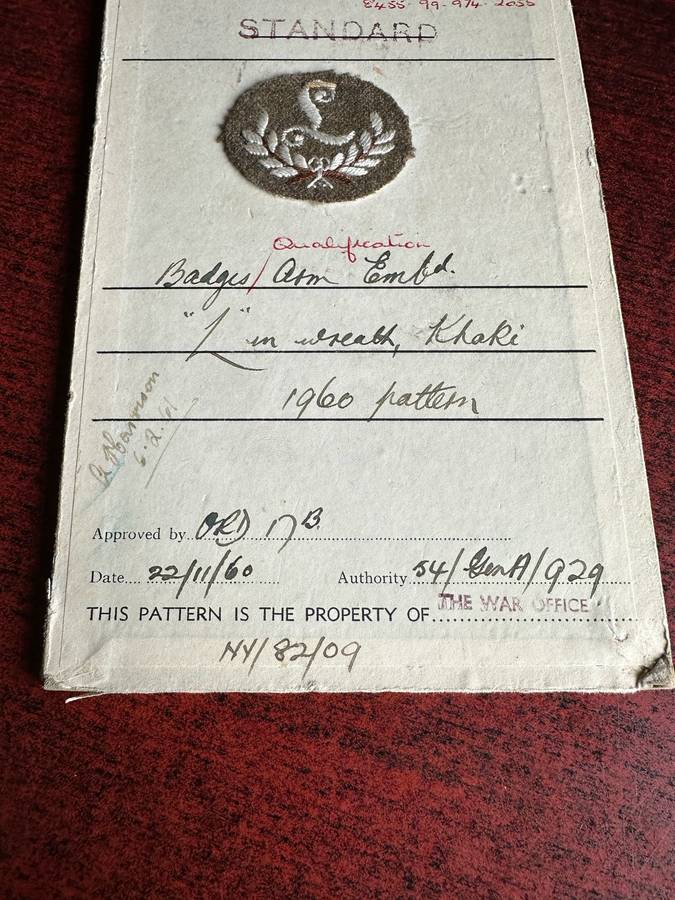 8455-99-974-2055
STANDARD
Qualification
Badges/Arm Embd.
"L" in wreath, Khaki
1960 pattern
Harrison
6.2.61
Approved by ORD 17B
Date 22/11/60 Authority 54/GenA/929
THIS PATTERN IS THE PROPERTY OF THE WAR OFFICE
NY/82/09